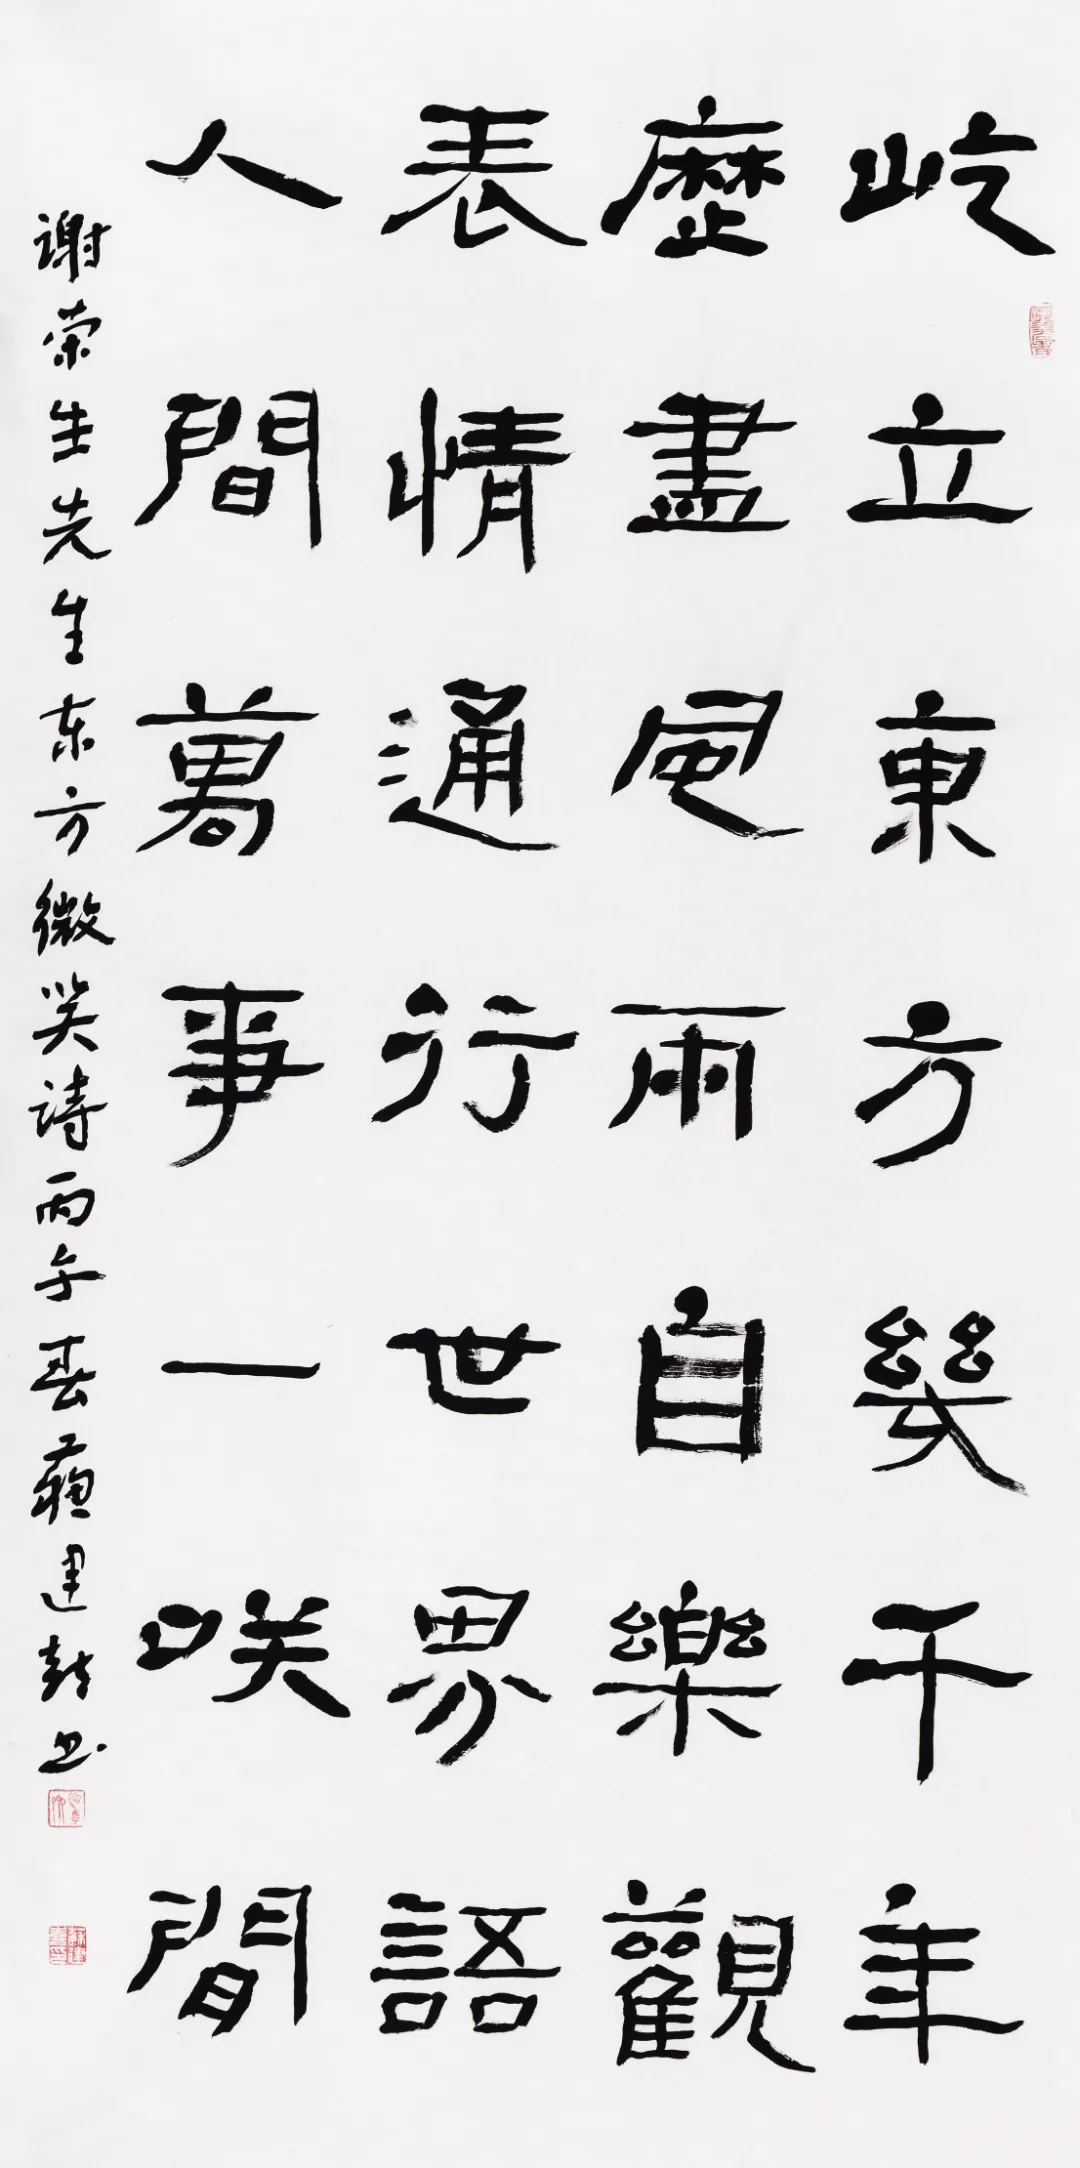 屹立東方幾千年
歷盡風雨自樂觀
表情通行世界語
人間萬事一咲間
谢荣生先生东方微笑诗丙午春蘓建书